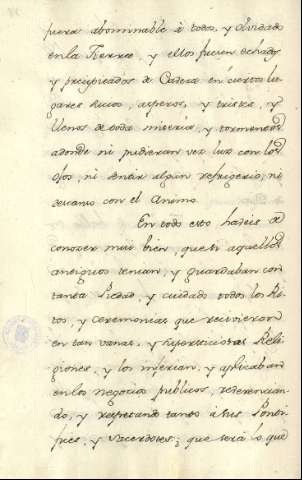 fuera abominable á todos, y olvidado
en la Tierra, y ellos fuesen echados
y precipitados de Cabeza en ciertos lu-
gares sucios, asperos, y tristes, y
llenos de toda miseria, y tormentos
adonde ni pudieran ver luz con los
ojos, ni sentir algun refrigerio, ni
descanso con el Animo.
En todo esto habeis de
conozer mui bien, que si aquellos
antiguos tenian, y guardaban con
tanta Piedad, y cuidado todos los Ri-
tos, y ceremonias que recivieron
en sus vanas, y supersticiosas Reli-
giones, y los mejerian, y aplicaban
en los negocios publicos, reverencian-
do, y respetando tanto á sus Ponti-
fices, y sacerdotes; que será lo que